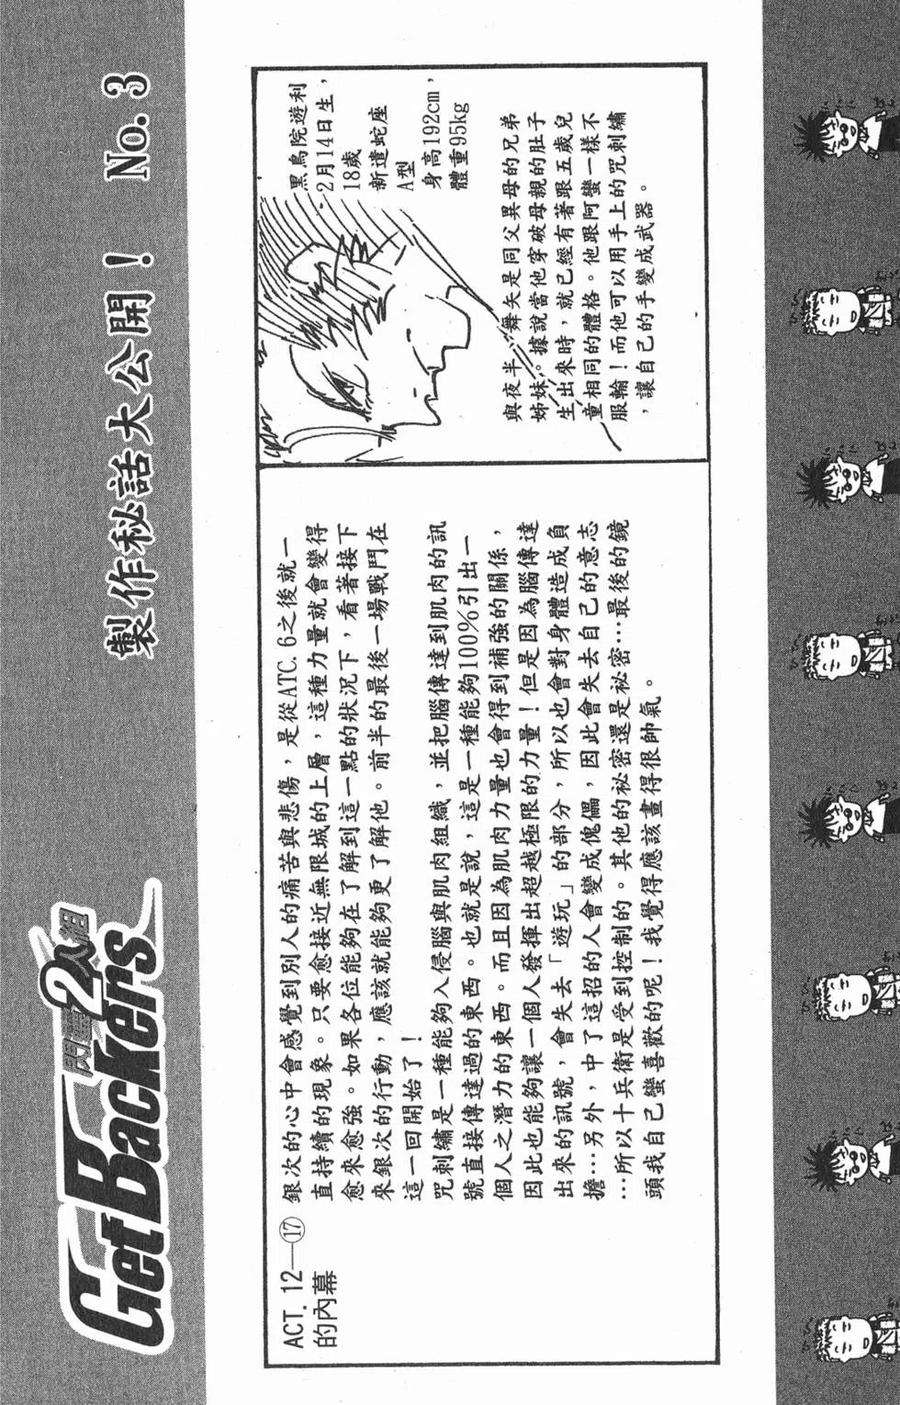 閃靈2人組
GetBackers
製作秘話大公開！ No. 3
ACT. 12—⑰
的內幕
銀次的心中會感覺到別人的痛苦與悲傷，是從ATC. 6之後就一
直持續的現象。只要愈接近無限城的上層，這種力量就會變得
愈來愈強。如果各位能夠在了解到這一點的狀況下，看著接下
來銀次的行動，應該就能夠更了解他。前半的最後一場戰鬥在
這一回開始了！
咒刺繡是一種能夠入侵腦與肌肉組織，並把腦傳達到肌肉的訊
號直接傳達過的東西。也就是說，這是一種能夠100%引出一
個人之潛力的東西。而且因為肌肉力量也會得到補強的關係，
因此也能夠讓一個人發揮出超越極限的力量！但是因為腦傳達
出來的訊號，會失去「遊玩」的部分，所以也會對身體造成負
擔…另外，中了這招的人會變成傀儡，因此會失去自己的意志
…所以十兵衛是受到控制的。其他的秘密還是祕密…最後的鏡
頭我自己蠻喜歡的呢！我覺得應該畫得很帥氣。
黑鳥院遊利
2月14日生，
18歲
新遣蛇座
A型
身高192cm，
體重95kg
與夜半、舞矢是同父異母的兄弟
姊妹。據說當他穿破母親的肚子
生出來時，就已經有著跟五歲兒
童相同的體格。他跟阿蠻一樣不
服輸！而他可以用手上的咒刺繡
，讓自己的手變成武器。